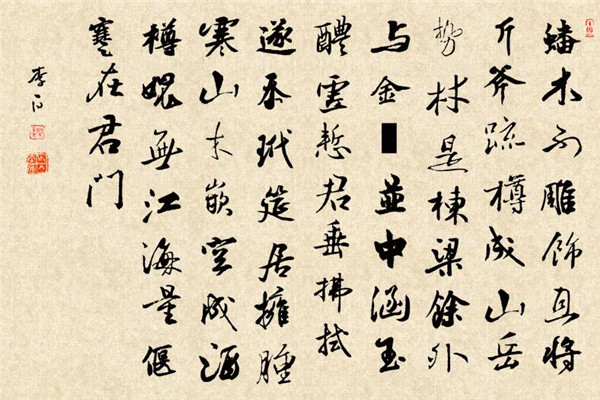 蟠木不雕飾且將
斤斧疏樽成山岳
勢材是棟梁餘外
与金■並中涵玉
醴虛慙君垂拂拭
遂忝玳筵居擁腫
寒山木嵌空成酒
樽愧無江海量偃
蹇在君門
李白